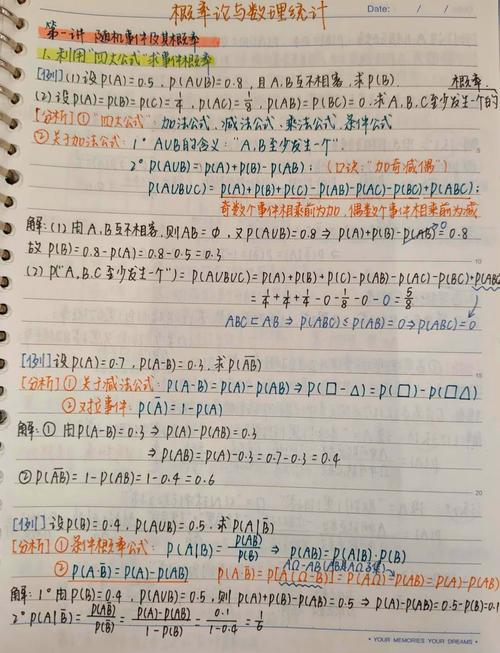 概率论与数理统计
Date: / /
第一讲 随机事件及其概率
1. 利用"四大公式"求事件概率
[例](1)设P(A)=0.5, P(A∪B)=0.8, 且A,B互不相容, 求P(B) 概率.
(2)设P(A)=P(B)=P(C)=1/4, P(AC)=1/8, P(AB)=P(BC)=0. 求A,B,C至少发生一个的
[分析]①"四大公式": 加法公式, 减法公式, 乘法公式, 条件公式
②关于加法公式: 1° A∪B的含义: "A,B至少发生一个"
2° P(A∪B)=P(A)+P(B)-P(AB); (口诀: "加奇减偶")
P(A∪B∪C)=P(A)+P(B)+P(C)-P(AB)-P(AC)-P(BC)+P(ABC);
奇数个事件相乘前为加, 偶数个事件相乘前为减
解: (1)由A,B互不相容, 则AB=Φ, 又P(A∪B)=0.8⇒P(A)+P(B)-P(AB)=0.8
0
故P(B)=0.8-P(A)=0.8-0.5=0.3
(2) P("A,B,C至少发生一个")=P(A∪B∪C)=P(A)+P(B)+P(C)-P(AB)-P(AC)-P(BC)+P(ABC)
=1/4+1/4+1/4-0-1/8-0-0=5/8
ABC⊂AB⇒P(ABC)≤P(AB)=0⇒P(ABC)=0
[例]设P(A)=0.7, P(A-B)=0.3, 求P(A̅B̅)
[分析]①关于减法公式: P(A-B)=P(A)-P(AB)⇒P(□-△)=P(□)-P(□△)
②对立事件: P(A̅)=1-P(A)
解: ①由P(A-B)=0.3⇒P(A)-P(AB)=0.3
⇒P(AB)=P(A)-0.3=0.7-0.3=0.4
②P(A̅B̅)=1-P(AB)=1-0.4=0.6
[例]设P(B)=0.4, P(A∪B)=0.5, 求P(A|B̅)
[分析]①条件概率公式: P(A|B)=P(AB)/P(B)⇒P(AB)=P(A|B)·P(B)
②P(A·B̅)=P(A)-P(AB) P(A·B̅)=P[A(Ω-B)]=P(AΩ)-P(AB)=P(A)-P(AB)
AΩ-AB
解: 1°由P(B)=0.4, P(A∪B)=0.5, 则P(A)+P(B)-P(AB)=0.5⇒P(A)-P(AB)=0.5-P(B)=0.1
2° P(A|B̅)=P(AB̅)/P(B̅)=P(A)-P(AB)/1-P(B)=0.1/1-0.4=1/6
YOUR MEMORIES YOUR DREAMS